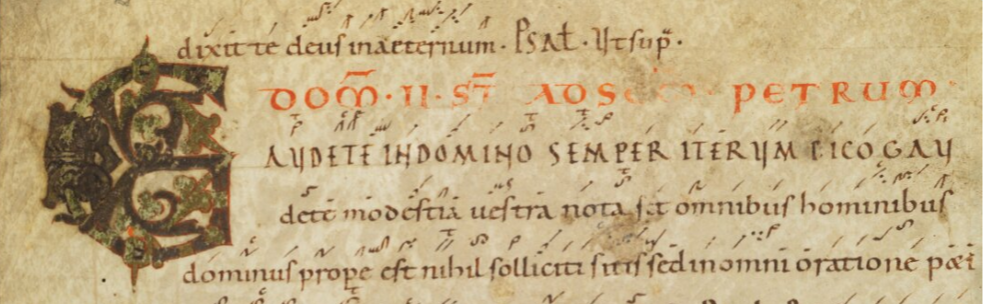 dixit te deus inaeternum. Psal. Ut sup.
DOM. II. ST AD SCM PETRUM
GAUDETE IN DOMINO SEMPER ITERUM DICO GAU
dete modestia uestra nota sit omnibus hominibus
dominus prope est nihil solliciti sitis sed in omni oratione